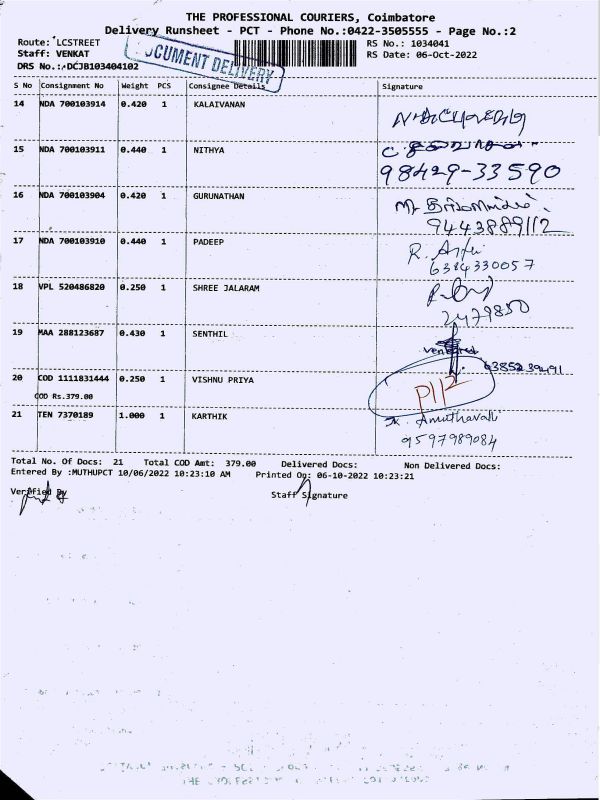 THE PROFESSIONAL COURIERS, Coimbatore
Delivery Runsheet - PCT - Phone No.:0422-3505555 - Page No.:2
Route: LCSTREET
Staff: VENKAT
DRS No.: DCJB103404102
DOCUMENT DELIVERY
RS No.: 1034041
RS Date: 06-Oct-2022
S No Consignment No Weight PCS Consignee Details Signature
14 NDA 700103914 0.420 1 KALAIVANAN
15 NDA 700103911 0.440 1 NITHYA
98429-33590
16 NDA 700103904 0.420 1 GURUNATHAN
9443889112
17 NDA 700103910 0.440 1 PADEEP
6384330057
18 VPL 520486820 0.250 1 SHREE JALARAM
2479850
19 MAA 288123687 0.430 1 SENTHIL
20 COD 1111831444 0.250 1 VISHNU PRIYA
COD Rs.379.00
21 TEN 7370189 1.000 1 KARTHIK
Amuthavalli
9597989084
Total No. Of Docs: 21 Total COD Amt: 379.00 Delivered Docs: Non Delivered Docs:
Entered By :MUTHUPCT 10/06/2022 10:23:10 AM Printed On: 06-10-2022 10:23:21
Verified By Staff Signature